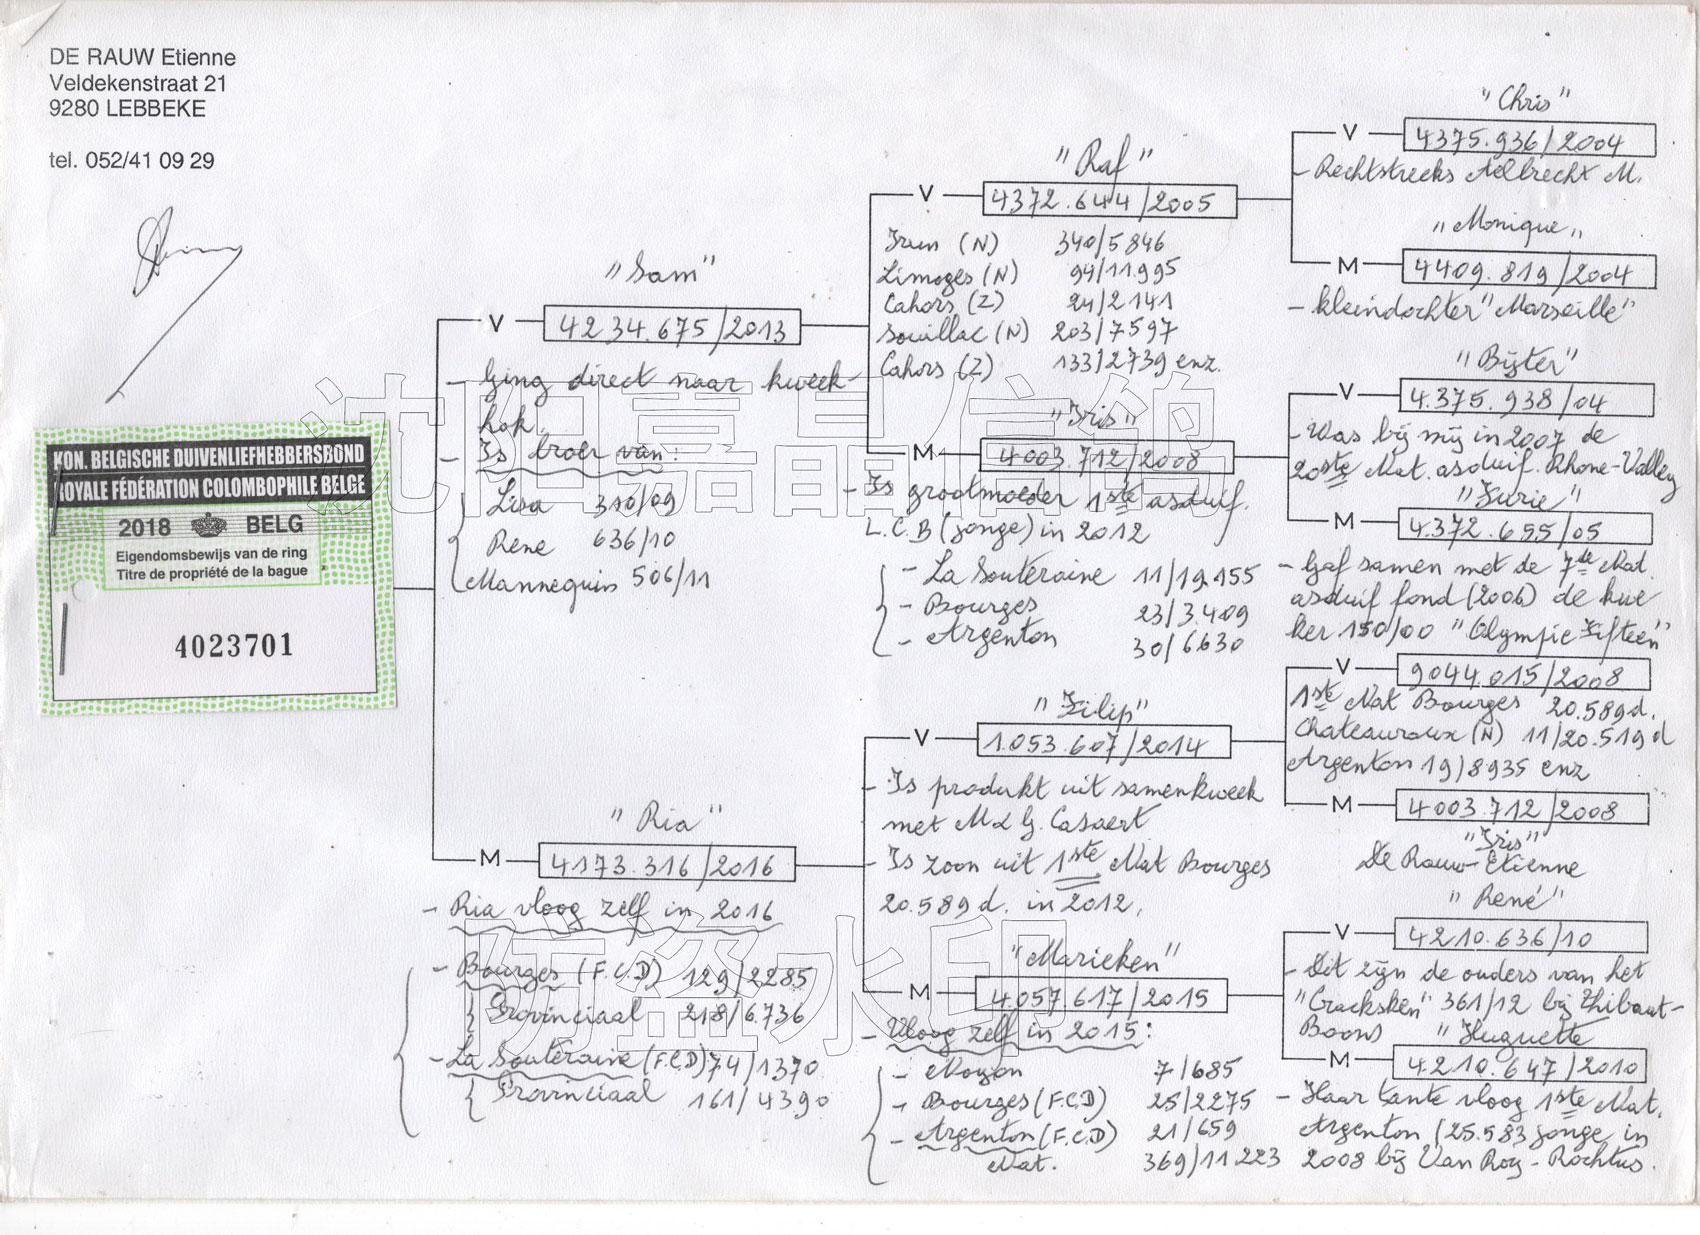 DE RAUW Etienne
Veldekenstraat 21
9280 LEBBEKE
tel. 052/41 09 29
KON. BELGISCHE DUIVENLIEFHEBBERSBOND
ROYALE FÉDÉRATION COLOMBOPHILE BELGE
2018 BELG
Eigendomsbewijs van de ring
Titre de propriété de la bague
4023701
"Sam"
V 4234.675/2013
- Ging direct naar kweek-
hok.
- Is broer van:
Lisa 310/09
Rene 636/10
Mannequin 506/11
"Ria"
M 4173.316/2016
- Ria vloog zelf in 2016
- Bourges (F.C.D) 129/2285
Provinciaal 218/6.736
- La Souteraine (F.C.D) 74/1370
Provinciaal 161/4390
"Raf"
V 4372.644/2005
Irun (N) 340/5846
Limoges (N) 94/11.995
Cahors (Z) 24/2141
Souillac (N) 203/7597
Cahors (Z) 133/2739 enz.
"Iris"
M 4003.712/2008
- Is grootmoeder 1ste asduif.
L.C.B (jonge) in 2012
- La Souteraine 11/19.155
- Bourges 23/3.409
- Argenton 30/6630
"Filip"
V 1.053.607/2014
- Is produkt uit samenkweek
met M & G. Casaert
- Is zoon uit 1ste Nat Bourges
20.589 d. in 2012.
"Marieken"
M 4.057.617/2015
- Vloog zelf in 2015:
- Noyon 7/685
- Bourges (F.C.D) 25/2275
- Argenton (F.C.D) 21/659
Nat. 369/11223
"Chris"
V 4375.936/2004
- Rechtstreeks Aelbrecht M.
"Monique"
M 4409.819/2004
- kleindochter "Marseille"
"Bijter"
V 4.375.938/04
- Was bij mij in 2007 de
20ste Nat. asduif. Rhone-Valley
"Furie"
M 4.372.655/05
- Gaf samen met de 7de Nat.
asduif fond (2006) de kwe
ker 150/00 "Olympic Fifteen"
V 9044.015/2008
1ste Nat Bourges 20.589 d.
Chateauroux (N) 11/20.519 d
Argenton 19/8935 enz
M 4003.712/2008
"Iris"
De Rauw-Etienne
"René"
V 4210.636/10
- Dit zijn de ouders van het
"Cracksken" 361/12 bij Thibaut-
Boons
"Huguette"
M 4210.647/2010
- Haar tante vloog 1ste Nat.
Argenton (25.583 jonge in
2008 bij Van Roy - Rochtus.
沈阳嘉晶信鸽
防盗水印